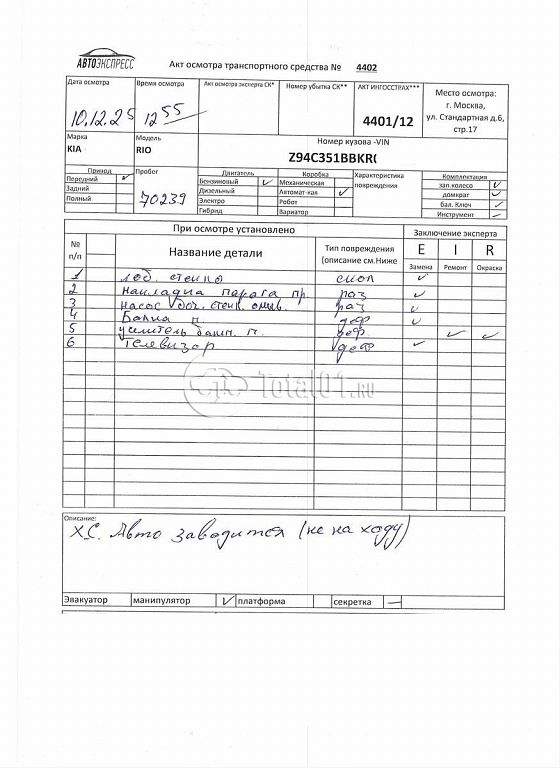 АВТОЭКСПРЕСС
Акт осмотра транспортного средства № 4402
Дата осмотра Время осмотра Акт осмотра эксперта СК* Номер убытка СК** АКТ ИНГОССТРАХ*** Место осмотра:
10.12.25 12 55 4401/12 г. Москва,
ул. Стандартная д.6,
стр.17
Марка Модель Номер кузова -VIN
KIA RIO Z94C351BBKR
Привод Пробег Двигатель Коробка Характеристика повреждения Комплектация
Передний ✓ 70239 Бензиновый ✓ Механическая зап.колесо ✓
Задний Дизельный Автомат-кая ✓ домкрат ✓
Полный Электро Робот бал. Ключ ✓
Гибрид Вариатор Инструмент ✓
При осмотре установлено Заключение эксперта
№ п/п Название детали Тип повреждения (описание см.Ниже E I R
Замена Ремонт Окраска
1 лоб. стекло скол ✓
2 накладка порога пр. раз ✓
3 насос боч. стекл. омыв. раз ✓
4 Балка п. деф ✓
5 усилитель бамп. п. деф ✓ ✓
6 Телевизор деф ✓
Total01.RU
Описание:
Х.С. Авто заводится (не на ходу)
Эвакуатор манипулятор ✓ платформа секретка —